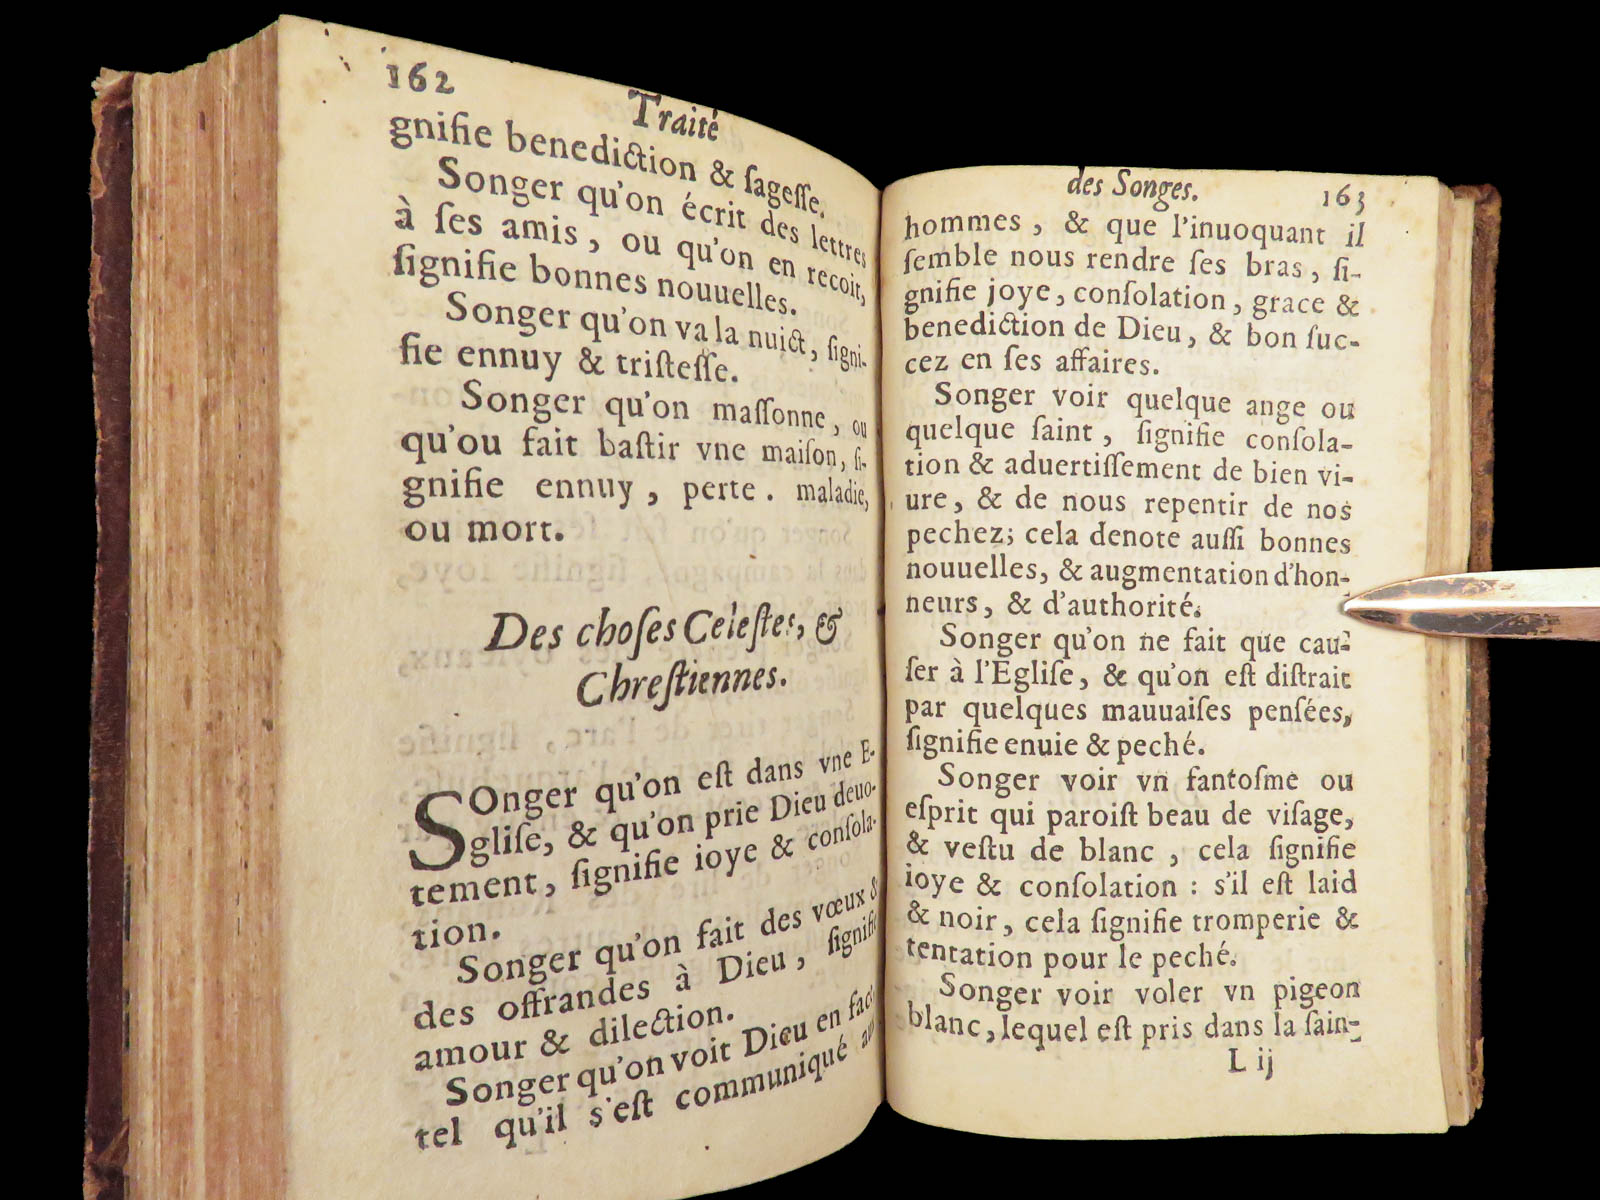 162
Traité
gnifie benediction & ſageſſe.
Songer qu'on écrit des lettres
à ſes amis, ou qu'on en recoit,
ſignifie bonnes nouuelles.
Songer qu'on va la nuict, ſigni-
fie ennuy & triſteſſe.
Songer qu'on maſſonne, ou
qu'ou fait baſtir vne maiſon, ſi-
gnifie ennuy, perte. maladie,
ou mort.
Des choſes Celeſtes, &
Chreſtiennes.
SOnger qu'on eſt dans vne E-
gliſe, & qu'on prie Dieu deuo-
tement, ſignifie ioye & conſola-
tion.
Songer qu'on fait des vœux &
des offrandes à Dieu, ſignifie
amour & dilection.
Songer qu'on voit Dieu en face
tel qu'il s'eſt communiqué aux
des Songes.
163
hommes, & que l'inuoquant il
ſemble nous rendre ſes bras, ſi-
gnifie joye, conſolation, grace &
benediction de Dieu, & bon ſuc-
cez en ſes affaires.
Songer voir quelque ange ou
quelque ſaint, ſignifie conſola-
tion & aduertiſſement de bien vi-
ure, & de nous repentir de nos
pechez; cela denote auſſi bonnes
nouuelles, & augmentation d'hon-
neurs, & d'authorité.
Songer qu'on ne fait que cau-
ſer à l'Egliſe, & qu'on eſt diſtrait
par quelques mauuaiſes penſées,
ſignifie enuie & peché.
Songer voir vn fantoſme ou
eſprit qui paroiſt beau de viſage,
& veſtu de blanc, cela ſignifie
ioye & conſolation : s'il eſt laid
& noir, cela ſignifie tromperie &
tentation pour le peché.
Songer voir voler vn pigeon
blanc, lequel eſt pris dans la ſain-
L ij